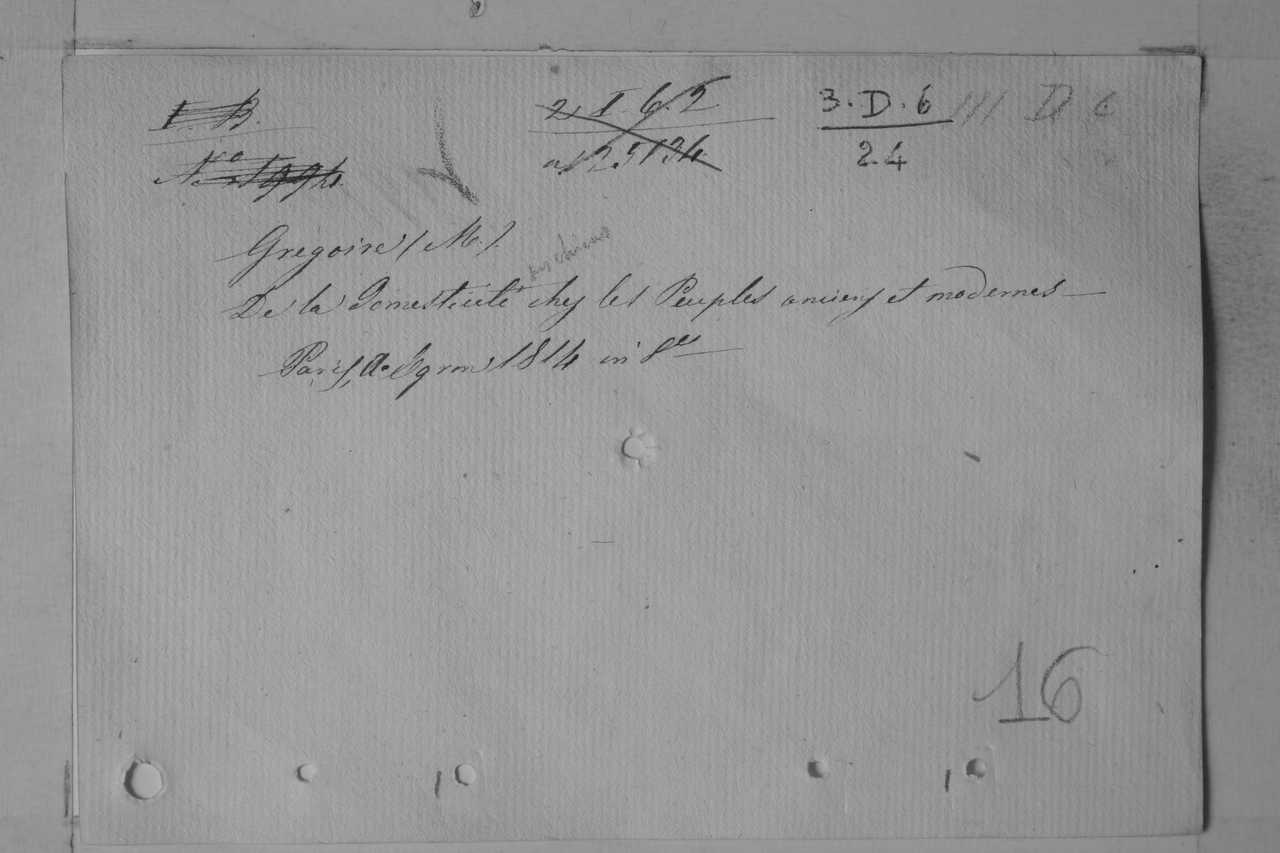 I. B. 2 I 6 2 3. D. 6 III D 6
No 1994. a 25134 2.4
Gregoire (M.).
De la Domesticité chez les Peuples anciens et modernes
Paris, A. Egron 1814 in 8º
16